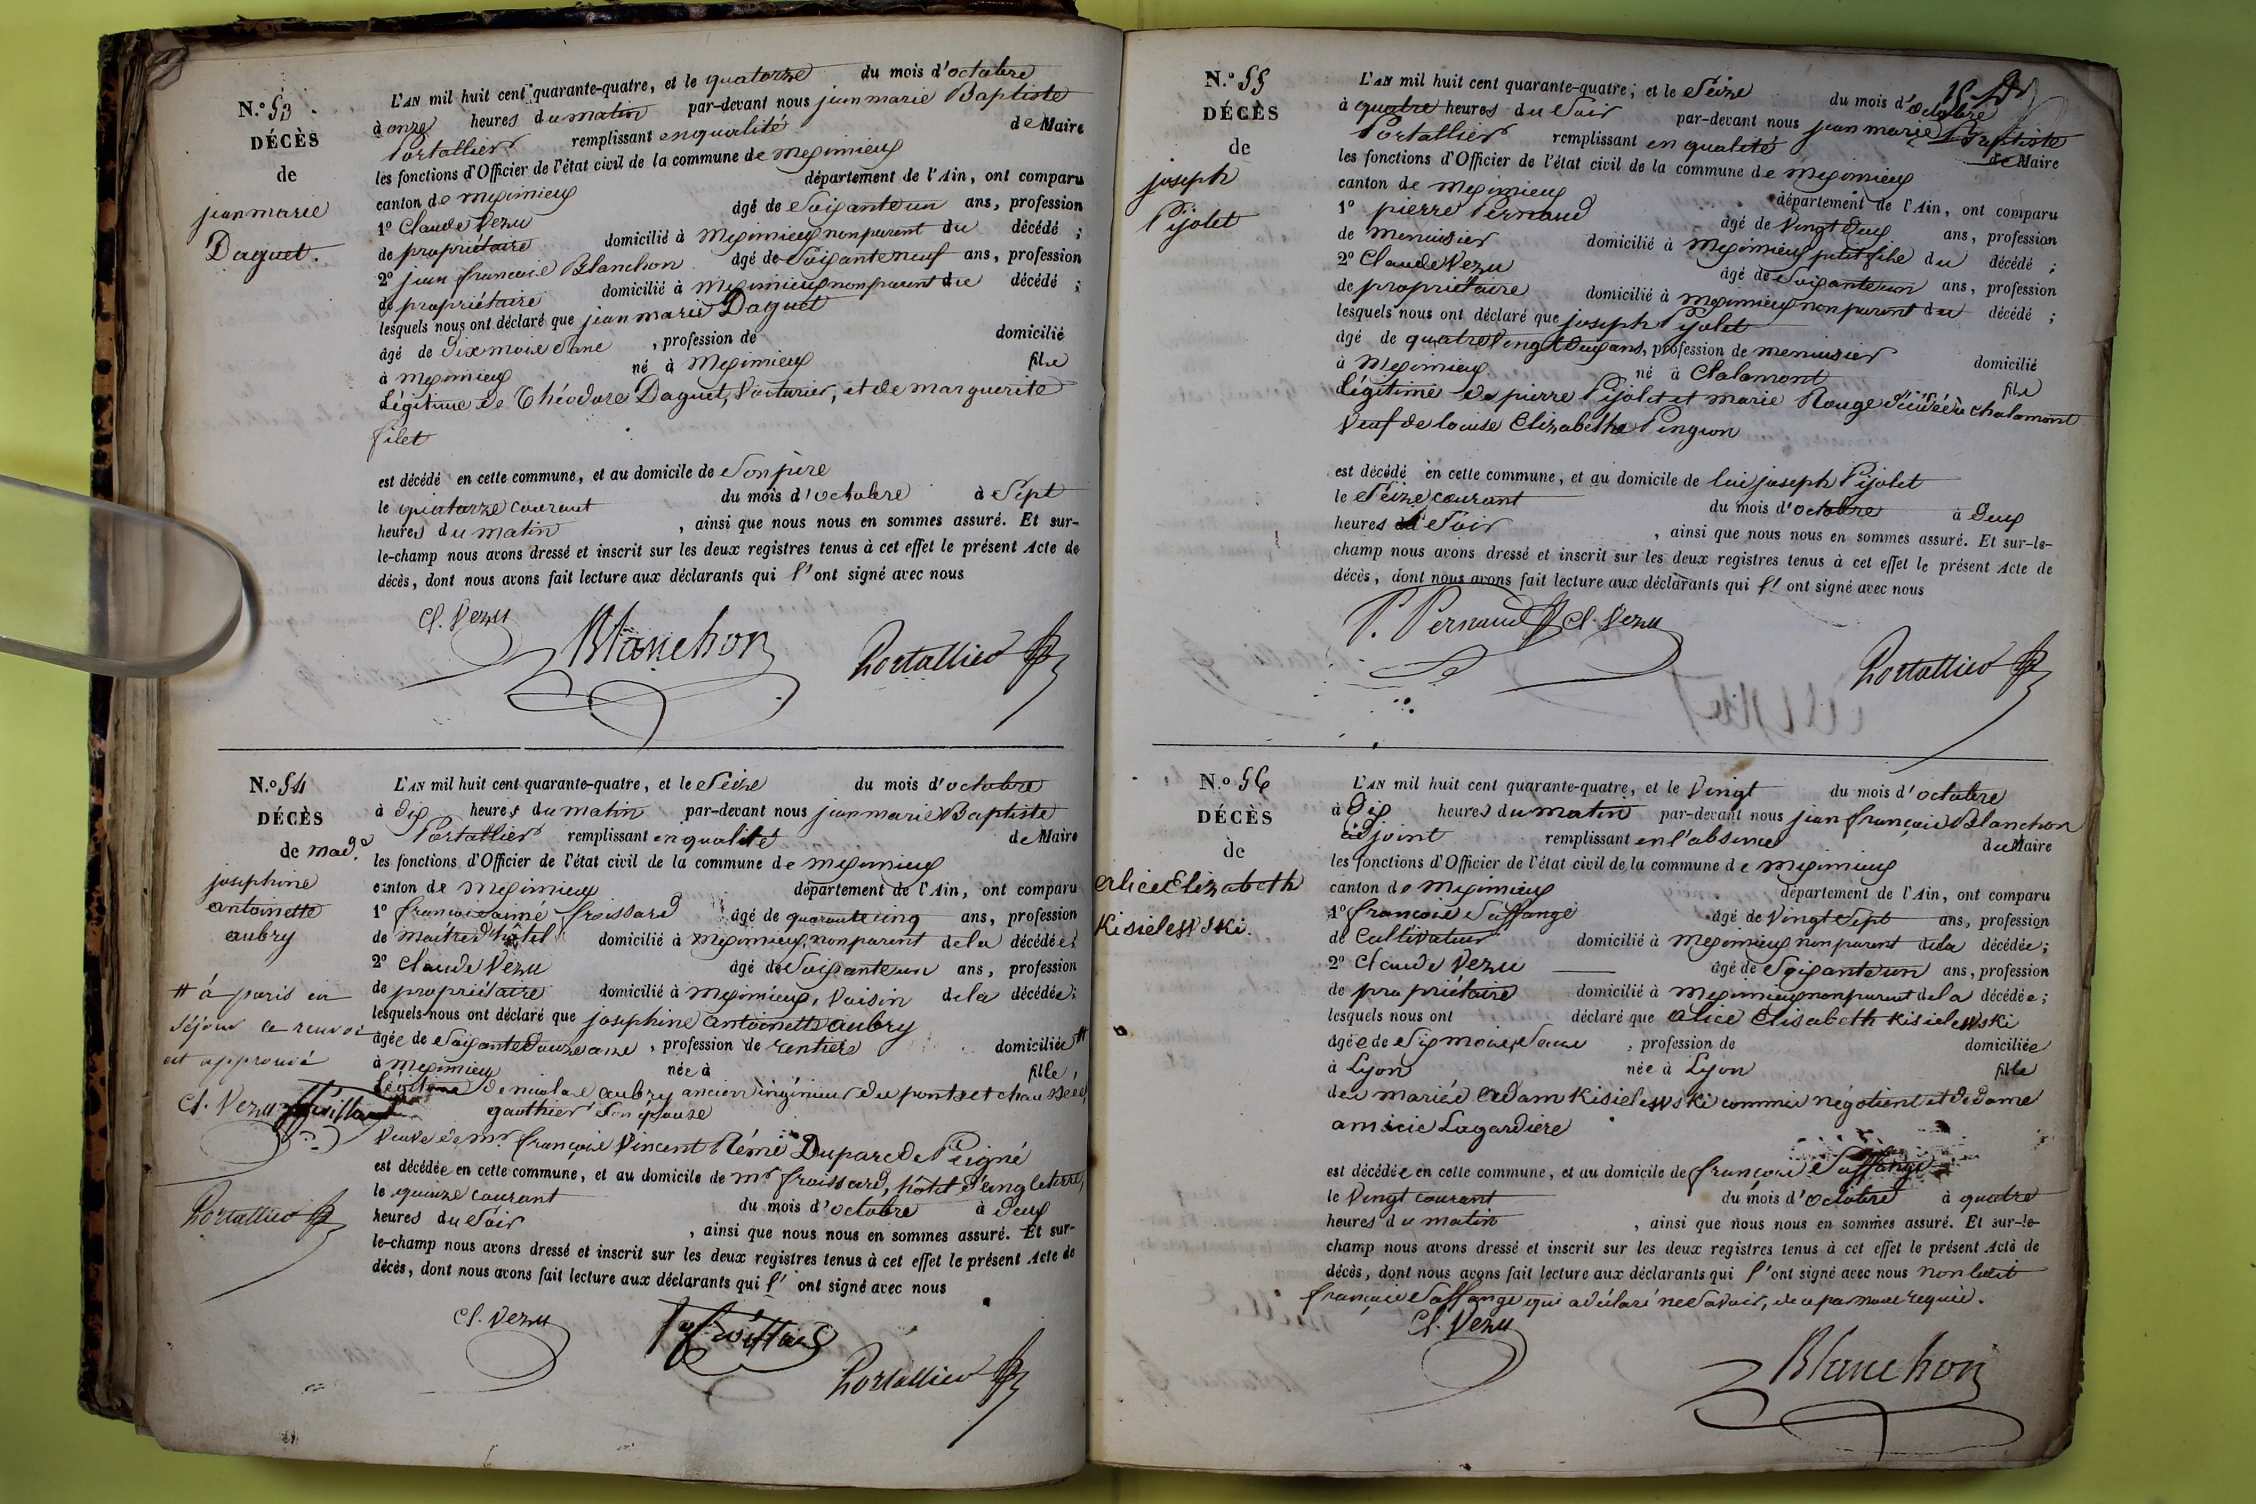 N.o 53
DÉCÈS
de
jean marie
Daguet.
L'AN mil huit cent quarante-quatre, et le quatorze du mois d'octobre
à onze heures du matin par-devant nous jean marie Baptiste
Portallier remplissant en qualité de Maire
les fonctions d'Officier de l'état civil de la commune de meximieux
canton de meximieux département de l'Ain, ont comparu
1o Claude Vezu âgé de Soixante un ans, profession
de propriétaire domicilié à meximieux non parent du décédé ;
2o jean françois Blanchon âgé de Soixante neuf ans, profession
de propriétaire domicilié à meximieux non parent du décédé ;
lesquels nous ont déclaré que jean marie Daguet
âgé de Dix mois d'ane , profession de domicilié
à meximieux né à meximieux fils
Légitime de Théodore Daguet, Voiturier, et de marguerite
filet
est décédé en cette commune, et au domicile de Son père
le quatorze courant du mois d'octobre à Sept
heures du matin , ainsi que nous nous en sommes assuré. Et sur-
le-champ nous avons dressé et inscrit sur les deux registres tenus à cet effet le présent Acte de
décès, dont nous avons fait lecture aux déclarants qui l'ont signé avec nous
Cl. Vezu
Blanchon
Portallier
N.o 54
DÉCÈS
de mad.e
josephine
antoinette
aubry
# à paris en
Séjour ce renvoi
est approuvé
Cl. Vezu
Portallier
L'AN mil huit cent quarante-quatre, et le Seize du mois d'octobre
à Dix heures du matin par-devant nous jean marie Baptiste
Portallier remplissant en qualité de Maire
les fonctions d'Officier de l'état civil de la commune de meximieux
canton de meximieux département de l'Ain, ont comparu
1o françois aimé froissard âgé de quarante cinq ans, profession
de maitre d'hôtel domicilié à meximieux, non parent de la décédée ;
2o Claude Vezu âgé de Soixante un ans, profession
de propriétaire domicilié à meximieux, Voisin de la décédée ;
lesquels nous ont déclaré que josephine antoinette aubry
âgée de Soixante Douze ans , profession de rentiere domiciliée #
à meximieux née à fille,
Légitime de nicolas aubry ancien ingénieur des ponts et chaussées,
gauthier Son épouse
Veuve de mr françois Vincent Rémi Duparc de Peigné
est décédée en cette commune, et au domicile de mr froissard, hôtel d'angleterre,
le quinze courant du mois d'octobre à Deux
heures du Soir , ainsi que nous nous en sommes assuré. Et sur-
le-champ nous avons dressé et inscrit sur les deux registres tenus à cet effet le présent Acte de
décès, dont nous avons fait lecture aux déclarants qui l'ont signé avec nous
Cl. Vezu
Portallier
N.o 55
DÉCÈS
de
joseph
Pijolet
L'AN mil huit cent quarante-quatre, et le Seize du mois d'octobre
à quatre heures du Soir par-devant nous jean marie Baptiste
Portallier remplissant en qualité de Maire
les fonctions d'Officier de l'état civil de la commune de meximieux
canton de meximieux département de l'Ain, ont comparu
1o pierre Pernaud âgé de Vingt Deux ans, profession
de menuisier domicilié à meximieux petit fils du décédé ;
2o Claude Vezu âgé de Soixante un ans, profession
de propriétaire domicilié à meximieux non parent du décédé ;
lesquels nous ont déclaré que joseph Pijolet
âgé de quatre Vingt Deux ans, profession de menuisier domicilié
à meximieux né à Chalamont fils
Légitime de pierre Pijolet et marie Rouge décédée à chalamont
Veuf de louise Elizabethe Pingeon
est décédé en cette commune, et au domicile de lui joseph Pijolet
le Seize courant du mois d'octobre à Deux
heures du Soir , ainsi que nous nous en sommes assuré. Et sur-le-
champ nous avons dressé et inscrit sur les deux registres tenus à cet effet le présent Acte de
décès, dont nous avons fait lecture aux déclarants qui l'ont signé avec nous
P. Pernaud Cl. Vezu
Portallier
N.o 56
DÉCÈS
de
alice Elizabeth
Kisielewski.
L'AN mil huit cent quarante-quatre, et le Vingt du mois d'octobre
à Dix heures du matin par-devant nous jean françois Blanchon
adjoint remplissant en l'absence du Maire
les fonctions d'Officier de l'état civil de la commune de meximieux
canton de meximieux département de l'Ain, ont comparu
1o françois Saffange âgé de Vingt Sept ans, profession
de Cultivateur domicilié à meximieux non parent de la décédée ;
2o Claude Vezu âgé de Soixante un ans, profession
de propriétaire domicilié à meximieux non parent de la décédée ;
lesquels nous ont déclaré que alice Elisabeth Kisielewski
âgée de Six mois , profession de domiciliée
à Lyon née à Lyon fille
des mariés adam Kisielewski commis négotient et de dame
amicie Lagardière
est décédée en cette commune, et au domicile de françois Saffange
le Vingt courant du mois d'octobre à quatre
heures du matin , ainsi que nous nous en sommes assuré. Et sur-le-
champ nous avons dressé et inscrit sur les deux registres tenus à cet effet le présent Acte de
décès, dont nous avons fait lecture aux déclarants qui l'ont signé avec nous non ledit
françois Saffange qui a déclaré ne Savoir, de ce par nous requis.
Cl. Vezu
Blanchon